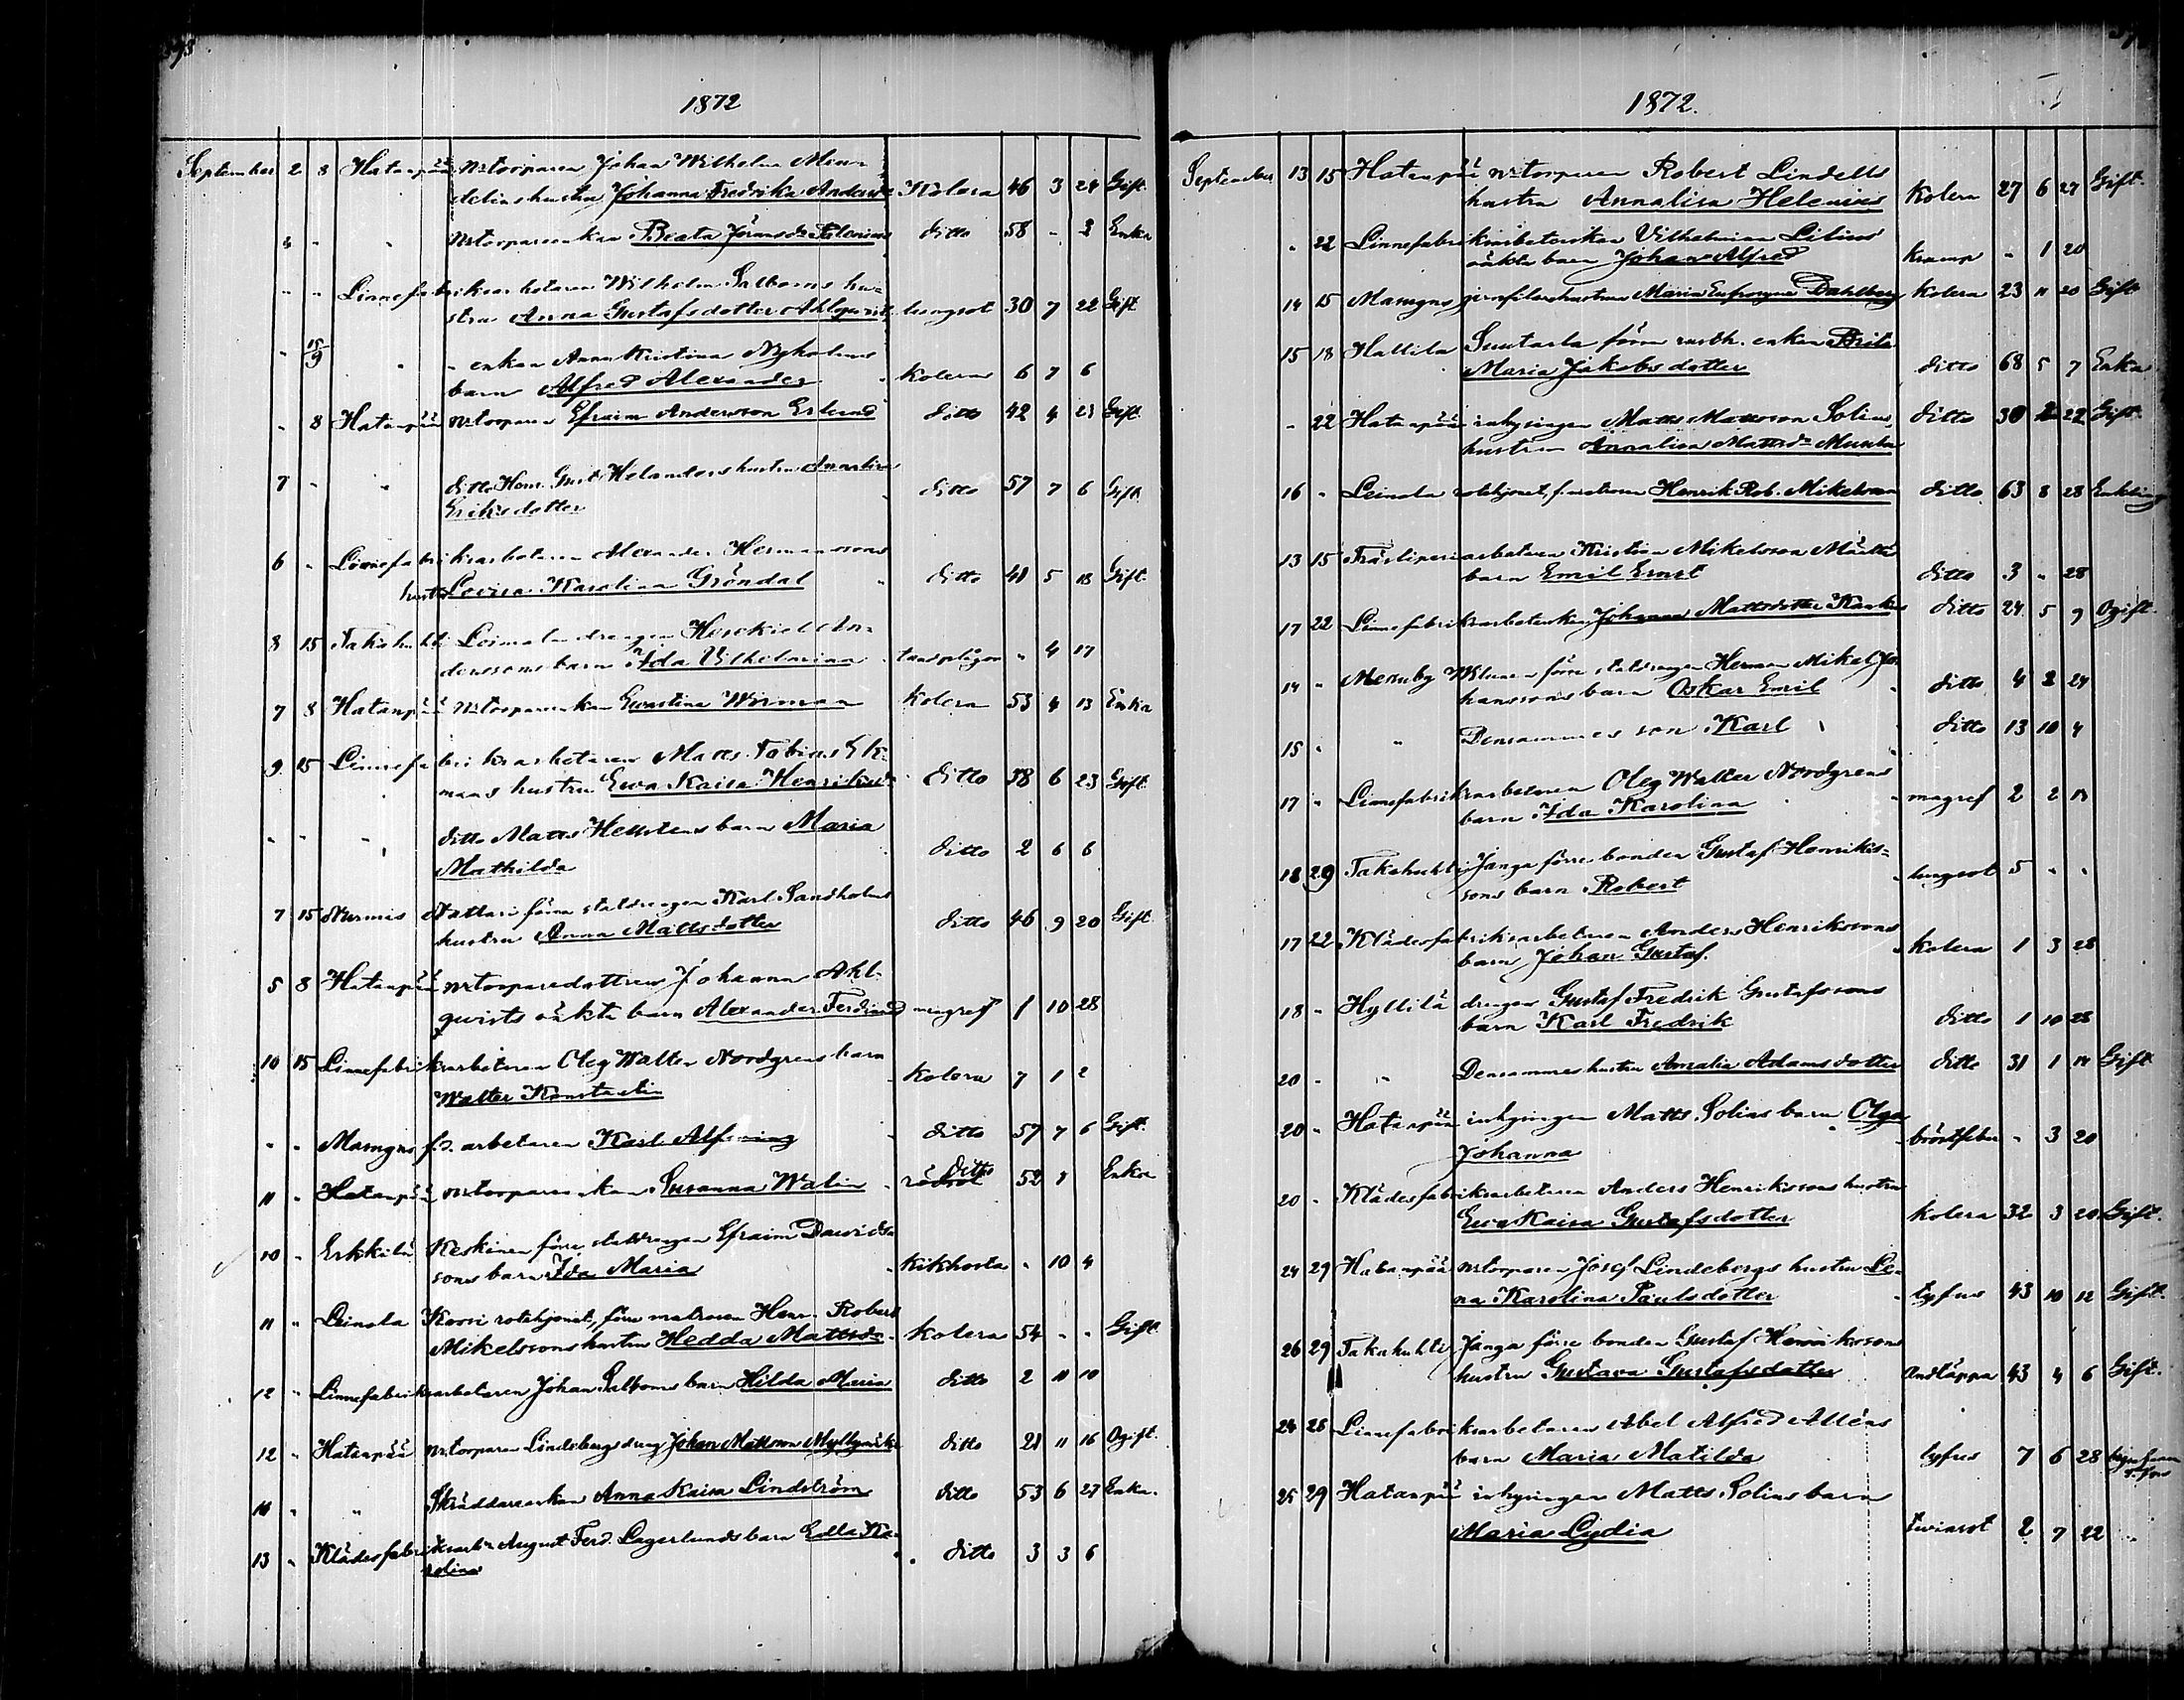 593
1872
September 2 8 Hatanpää Mstorparen Johan Wilhelm Mun-
delins hustru Johanna Fredrika Andersdr Kolera 46 3 24 Gift
" " Mstorpareenkan Beata Jöransdr Felenius ditto 58 - 2 Enka
" " Linnefabriksarbetaren Wilhelm Salboms hu-
stru Anna Gustafsdotter Ahlqvist lungsot 30 7 22 Gift
" 15/9 " " enkan Anna Kristina Nyholms
barn Alfred Alexander kolera 6 7 6
" 8 Hatanpää Mstorparen Efraim Andersson Erlund ditto 42 4 23 Gift
7 " " ditto Henr. Gust. Helanders hustru Annalisa
Eriksdotter ditto 57 7 6 Gift
6 " Linnefabriksarbetaren Alexander Hermanssons
hustru Lovisa Karolina Gröndal ditto 41 5 18 Gift
8 15 Takahuhti Loimala drängen Heskiel An-
derssons barn Ida Vilhelmina tandplågor " 4 17
7 8 Hatanpää Mstorpareenkan Ewastina Wirman Kolera 53 4 13 Enka
9 15 Linnefabriksarbetaren Matts Tobias Ek-
mans hustru Ewa Kaisa Henriksdr ditto 38 6 23 Gift
" " " ditto Matts Hellstens barn Maria
Mathilda ditto 2 6 6
7 15 Nurmis Nattari förra staldrängen Karl Sandholms
hustru Anna Mattsdotter ditto 46 9 20 Gift
5 8 Hatanpää Mstorparedottren Johanna Ahl-
qvists oäkta barn Alexander Ferdinand magref 1 10 28
10 15 Linnefabriksarbetaren Oleg Walter Nordgrens barn
Walter Konstantin Kolera 7 1 2
" " Mamgns f.d. arbetaren Karl Alfming ditto 57 7 6 Gift
11 " Hatanpää Mstorpareenkan Susanna Walin rödsot ditto 52 8 Enka
10 " Erkkilä Keskinen förre staldrängen Efraim Davids-
sons barn Ida Maria Kikhosta " 10 4
11 " Leinola Kovri rotehjonet, förre matrosen Henr. Robert
Mikelssons hustru Hedda Mattsdr Kolera 54 " " Gift
12 " Linnefabriksarbetaren Johan Salboms barn Hilda Maria ditto 2 11 10
12 " Hatanpää Mstorparen Lindebergs dräng Johan Mattsson Myllymäki ditto 21 11 16 Ogift
10 " " Skräddareenkan Anna Kaisa Lindström ditto 53 6 27 Enka.
13 " Klädesfabriksarbn August Ferd. Lagerlunds barn Edla Ka-
rolina ditto 3 3 6
1872.
September 13 15 Hatanpää Mstorparen Robert Lindells
hustru Annalisa Helenius Kolera 27 6 27 Gift.
" 22 Linnefabriksarbeterskan Vilhelmina Lilius
oäkta barn Johan Alfred Kramp " 1 20
14 15 Mamgns jernfilarehustrun Maria Eufrosyne Dahlberg Kolera 23 11 20 Gift
15 18 Hallila Suutarla förra rusth. enkan Brita
Maria Jakobsdotter ditto 68 5 7 Enka
" 22 Hatanpää inhysingen Matts Mattsson Solins
hustru Annalisa Mattsdr ditto 30 2 22 Gift.
16 " Leinola rotehjonet, f. matrosen Henrik Rob. Mikelsson ditto 63 8 28 Enkling
13 15 Träsliperiarbetaren Kristian Mikelsson
barn Emil Ernst ditto 3 " 28
17 22 Linnefabriksarbeterskan Johanna Mattsdotter ditto 24 5 9 Ogift.
14 " Messuby förre staldrängen Herman Mikel Jo-
hanssons barn Oskar Emil ditto 4 2 24
15 " " Densammes son Karl ditto 13 10 4
17 " Linnefabriksarbetaren Oleg Walter Nordgrens
barn Ida Karolina magref 2 2 13
18 29 Takahuhti Janga förre bonden Gustaf Henriks-
sons barn Robert lungsot 5 " "
17 22 Klädesfabriksarbetaren Anders Henrikssons
barn Johan Gustaf. Kolera 1 3 28
18 " Hyllilä drängen Gustaf Fredrik Gustafssons
barn Karl Fredrik ditto 1 10 28
20 " " Densammes hustru Amalia Adamsdotter ditto 31 1 14 Gift
20 " Hatanpää inhysingen Matts Solins barn Olga
Johanna bröstfeber " 3 20
20 " Klädesfabriksarbetaren Anders Henrikssons hustru
Ewa Kaisa Gustafsdotter Kolera 32 3 20 Gift.
24 29 Hatanpää Mstorparen Josef Lindebergs hustru Le-
na Karolina Paulsdotter tyfus 43 10 12 Gift.
26 29 Takahuhti Janga förre bonden Gustaf Henrikssons
hustru Gustava Gustafsdotter Andtäppa 43 4 6 Gift.
24 28 Linnefabriksarbetaren Abel Alfred Alléns
barn Maria Matilda tyfus 7 6 28
25 29 Hatanpää inhysingen Matts Solins barn
Maria Lydia tvinsot 2 7 22